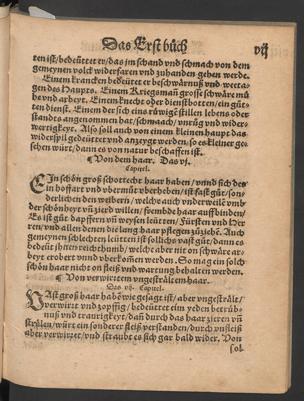 Das Erst büch vij
ten ist/bedeüttet er/das jm schand vnd schmach von dem
gemeynen volck widerfaren vnd zuhanden gehen werde.
Einem krancken bedeüttet er beschwärnuß vnd weeta-
gen des Haupts. Einem Kriegsmañ grosse schwäre mü
he vnd arbeyt. Einem knecht oder dienstbotten/ein gütten
dienst. Einem der sich eins rüwigē stillen lebens oder
standts angenommen hat/schmach/vnrüg vnd wider-
wertigkeyt. Also soll auch von einem kleinen haupt das
widerspil gedeüttet vnd anzeygt werden/so es kleiner ge-
sehen würt/dann es von natur beschaffen ist.
¶ Von dem haar. Das vj.
Capitel.
EIn schön groß schottecht haar haben/vnnd sich des
in hoffart vnd vbermüt vberheben/ist fast güt/son-
derlichen den weibern/welche auch vnderweilē vmb
der schönheyt vñ zierd willen/frembde haar auffbinden/
Es ist güt dapffern vñ weysen leütten/Fürsten vnd Her
ren/vnd allen denen die lang haar pflegen zůziehē. Auch
gemeynen schlechten leütten ist sollichs vast güt/dann es
bedeüt jhnen reichthumb/welche aber nit on schwäre ar-
beyt erobert vnnd vberkom̃en werden. So man ein solch
schön haar nicht on fleiß vnd wartung behalten werden.
¶ Von verwirtem vngesträltem haar.
Das vij. Capitel.
VAst groß haar habē wie gesagt ist/aber vngestrält/
verwirtz vnd zopffig/bedeüttet eim yeden betrüb-
nuß vnd traurigkeyt/dañ durch das haar zieren vñ
strylen/würt ein sonderer fleiß verstanden/durch vnfleiß
aber verwirret/vnd straubt es sich gar bald wider. Von
sol-